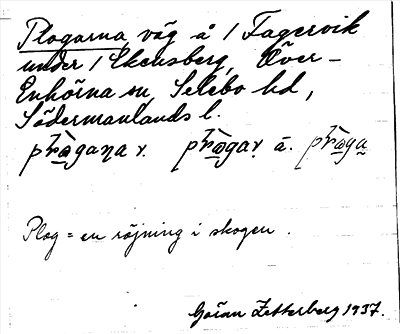 Plogarna väg å / Fagervik
under / Ekensberg, Över-
Enhörna sn, Selebo hd,
Södermanlands l.
prὰgaṇa v. prὰgaṛ ä. prὰga
Plog = en röjning i skogen.
Göran Zetterberg 1937.